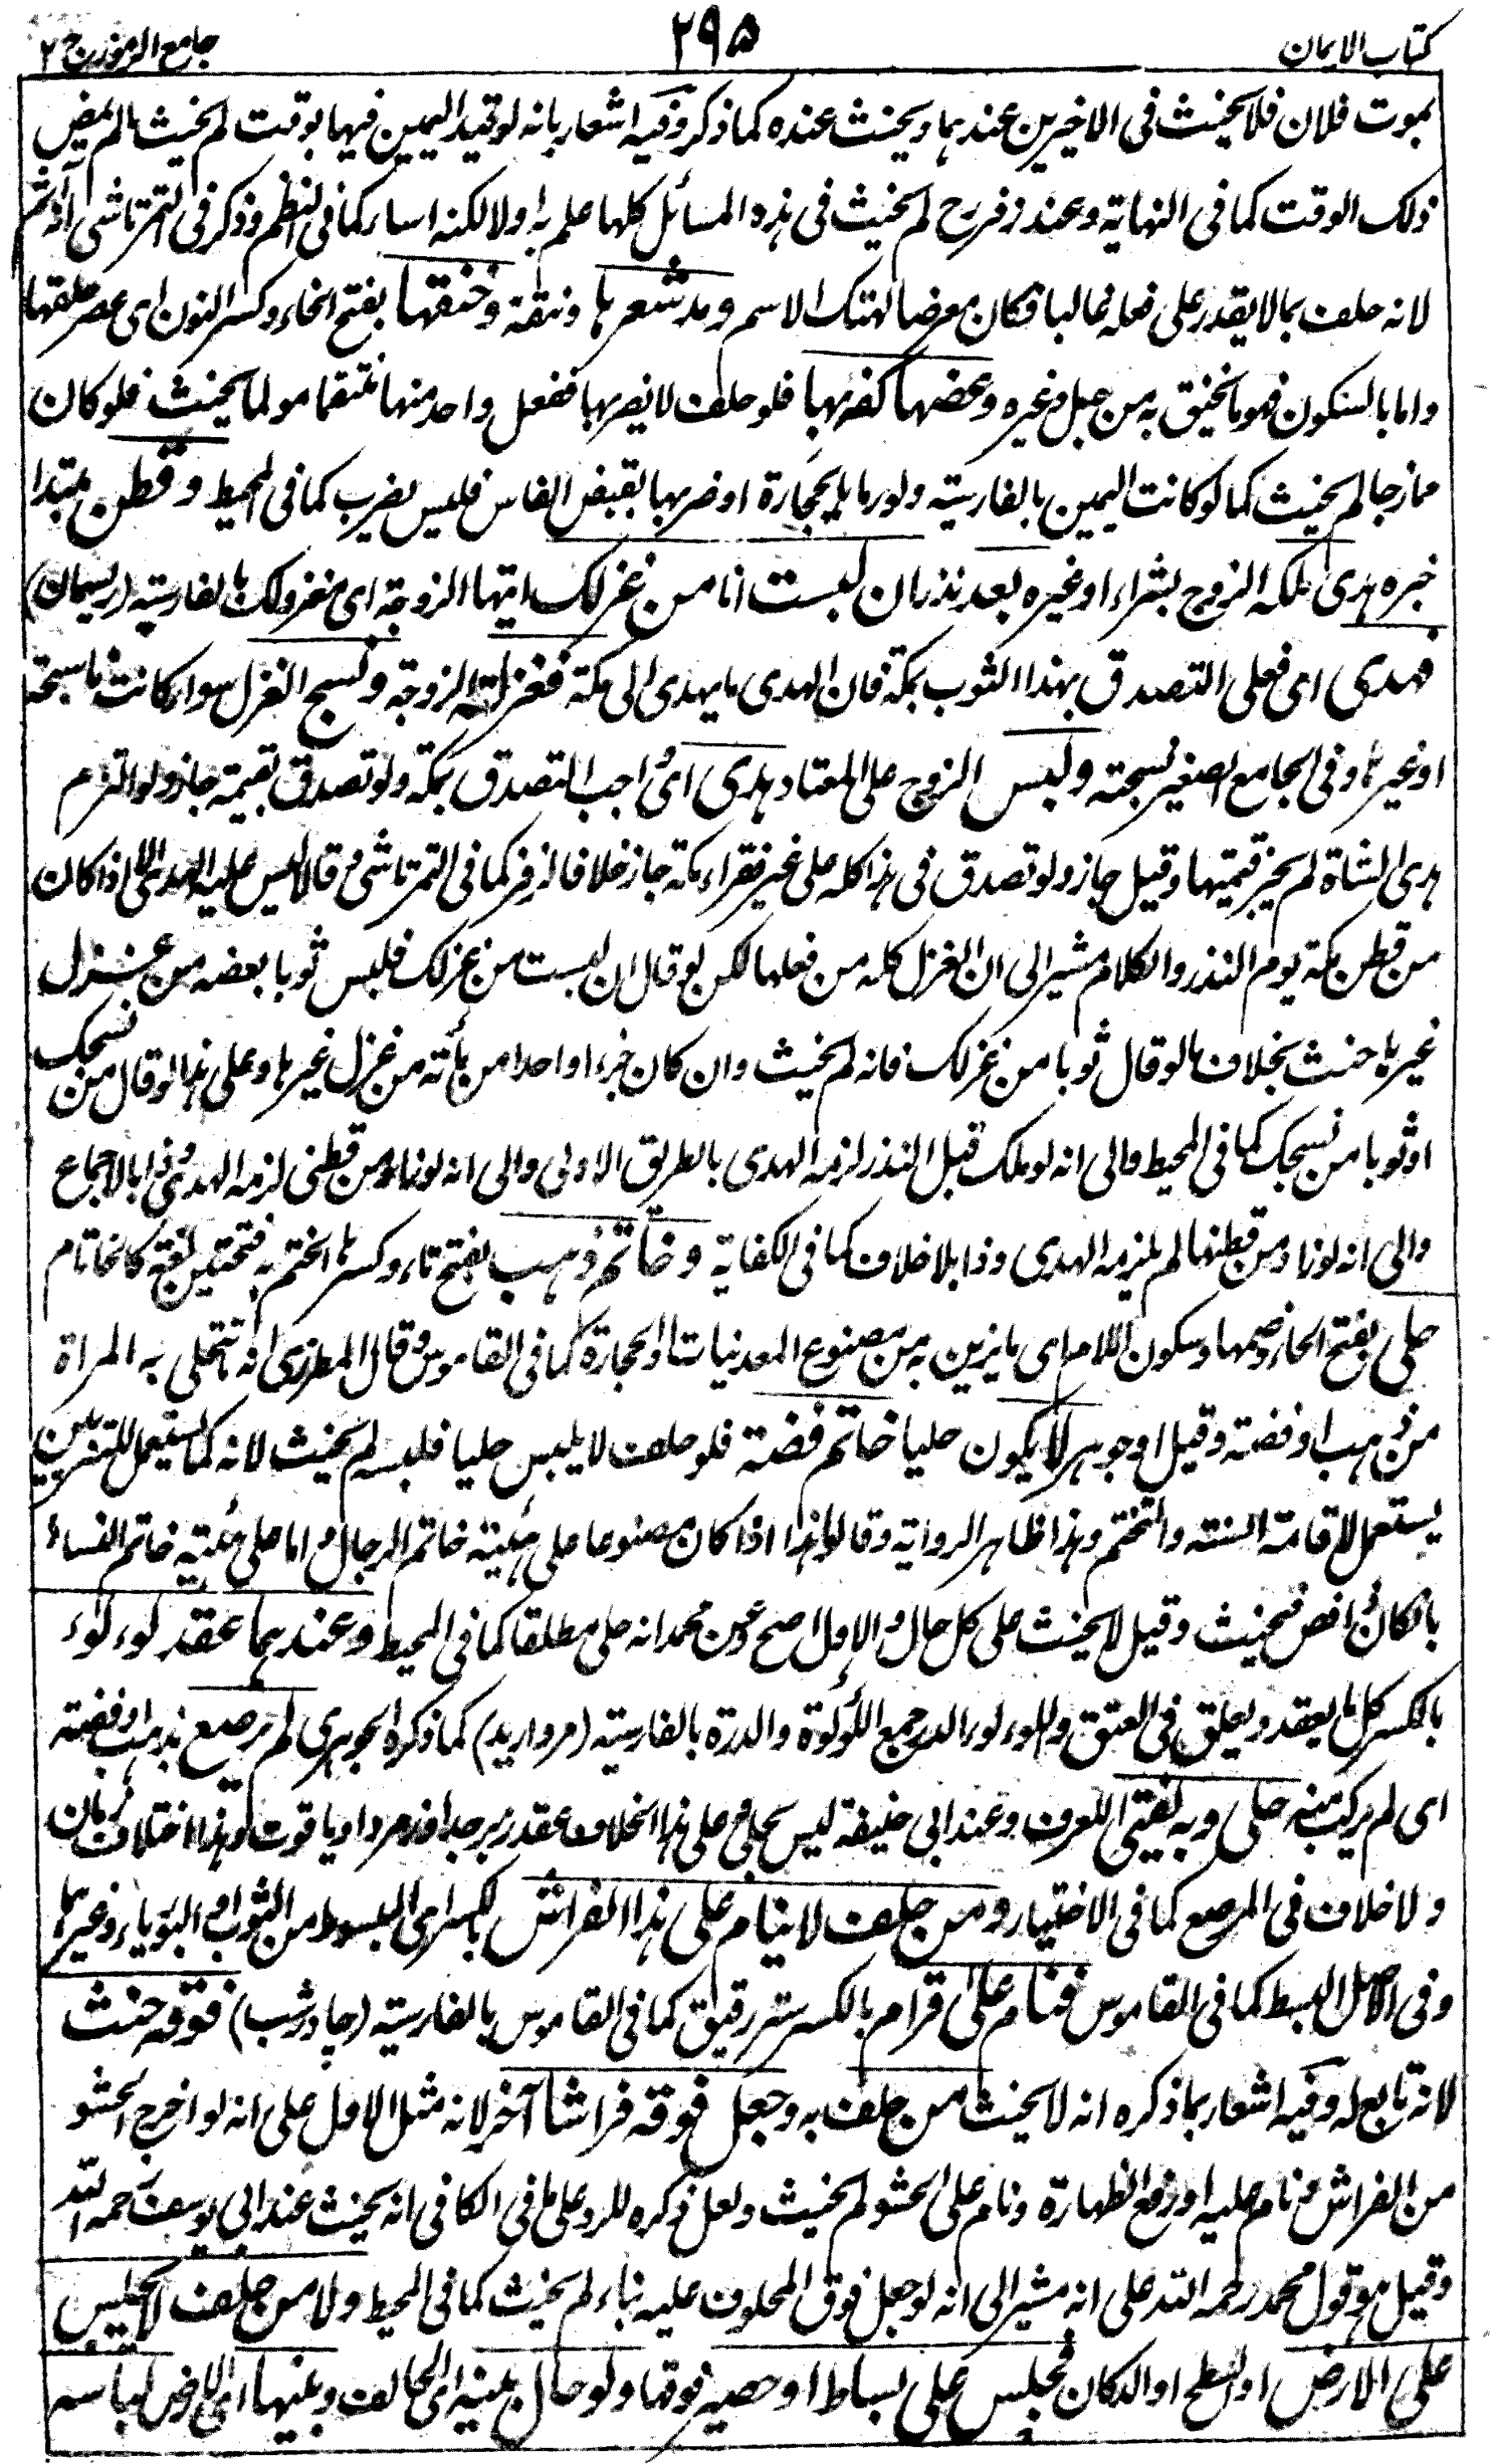 كتاب الايمان ٢٩٥ جامع الرموز ج ٢
بموت فلان فلا يحنث فى الاخيرين عندهما ويحنث عنده كما ذكر وفيه اشعار بانه لو قيد اليمين فيها بوقت لم يحنث مالم يمض
ذلك الوقت كما فى النهاية وعند زفر رح لم يحنث فى هذه المسائل كلها علم به اولا لكنه اساء كما فى النظم وذكر فى التمرتاشى انه اثم
لانه حلف بما لا يقدر على فعله غالبا فكان معرضا لهتك الاسم ومد شعرها ونتفه وخنقها بفتح الخاء وكسر النون اى عصر حلقها
واما بالسكون فهو ما يخنق به من حبل وغيره وعضها كضربها فلو حلف لا يضربها ففعل واحد منها منتقما مولما يحنث فلو كان
ممازحا لم يحنث كما لو كانت اليمين بالفارسية ولو رماها بحجارة او ضربها بقبض الفاس فليس بضرب كما فى المحيط وقطن مبتدا
خبره هدى ملكه الزوج بشراء او غيره بعد نذر ان لبست انا من غزلك ايتها الزوجة اى مغزولك بالفارسية (ريسمان)
فهدى اى فعلى التصدق بهذا الثوب بمكة فان الهدى ما يهدى الى مكة فغزلته الزوجة ونسج الغزل سواء كانت ناسجته
او غيرها وفى الجامع الصغير نسجته ولبس الزوج على المعتاد هدى اى اجب التصدق بمكة ولو تصدق بقيمته جاز ولو التزم
هدى الشاة لم يجز قيمتها وقيل جاز ولو تصدق فى هذا كله على غير فقراء مكة جاز خلافا لزفر كما فى التمرتاشى وقالا ليس عليه الهدى الا اذا كان
من قطن ملكه يوم النذر والكلام مشير الى ان الغزل كله من فعلها لكن لو قال ان لبست من غزلك فلبس ثوبا بعضه من غزل
غيرها حنث بخلاف ما لو قال ثوبا من غزلك فانه لم يحنث وان كان جزءا واحدا من مائة من غزل غيرها وعلى هذا لو قال من نسجك
او ثوبا من نسجك كما فى المحيط والى انه لو ملك قبل النذر لزمه الهدى بالطريق الاولى والى انه لو زاد من قطنى لزمه الهدى وذا بالاجماع
والى انه لو زاد من قطنها لم يلزمه الهدى وذا بلا خلاف كما فى الكفاية وخاتم ذهب بفتح تاء وكسرها ما يختم به بفتحتين لغة كالخاتام
حلى بفتح الحاء وضمها وسكون اللام اى ما يزين به من مصنوع المعدنيات او الحجارة كما فى القاموس وقال المطرزى انه ما تتحلى به المراة
من ذهب او فضة وقيل او جوهر لا يكون حليا خاتم فضة فلو حلف لا يلبس حليا فلبسه لم يحنث لانه كما يستعمل للتزيين
يستعمل لاقامة السنة والتختم وهذا ظاهر الرواية وقالوا هذا اذا كان مصنوعا على هيئة خاتم الرجال واما على هيئة خاتم النساء
بان كان له فص فيحنث وقيل لا يحنث على كل حال والاول اصح وعن محمد انه حلى مطلقا كما فى المحيط وعندهما عقد لوءلوء
بالكسر كل ما يعقد ويعلق فى العنق واللوءلوء الدر جمع اللؤلؤة والدرة بالفارسية (مرواريد) كما ذكره الجوهرى لم يرصع بذهب او فضة
اى لم يركب منه حلى وبه يفتى للعرف وعند ابى حنيفة ليس بحلى وعلى هذا الخلاف عقد زبرجد او زمرد او ياقوت وهذا اختلاف زمان
ولا خلاف فى المرصع كما فى الاختيار ومن حلف لا ينام على هذا الفراش بالكسر اى المبسوط من الثوب او البورياء وغيرهما
وفى الاصل البسط كما فى القاموس فنام على قرام بالكسر ستر رقيق كما فى القاموس بالفارسية (چادرشب) فوقه حنث
لانه تابع له وفيه اشعار بما ذكره انه لا يحنث من حلف به وجعل فوقه فراشا آخر لانه مثل الاول على انه لو اخرج الحشو
من الفراش ونام عليه او رفع الظهارة ونام على الحشو لم يحنث ولعل ذكره للرد على ما فى الكافى انه يحنث عند ابى يوسف رحمه الله
وقيل هو قول محمد رحمه الله على انه مشير الى انه لو جعل فوق المحلوف عليه بناء لم يحنث كما فى المحيط ولا من حلف لا يجلس
على الارض او السطح او الدكان فجلس على بساط او حصير فوقها ولو حال بينه اى الحالف وبينها اى الارض لباسه